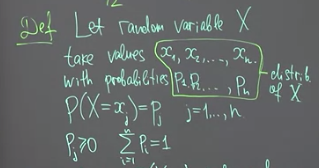 12
Def Let random variable X
take values x₁, x₂, ..., xₙ
with probabilities P₁, P₂, ..., Pₙ - distrib. of X
P(X=xⱼ)=Pⱼ j=1,...,n
Pⱼ≥0 ∑ᵢ₌₁ⁿ Pᵢ=1